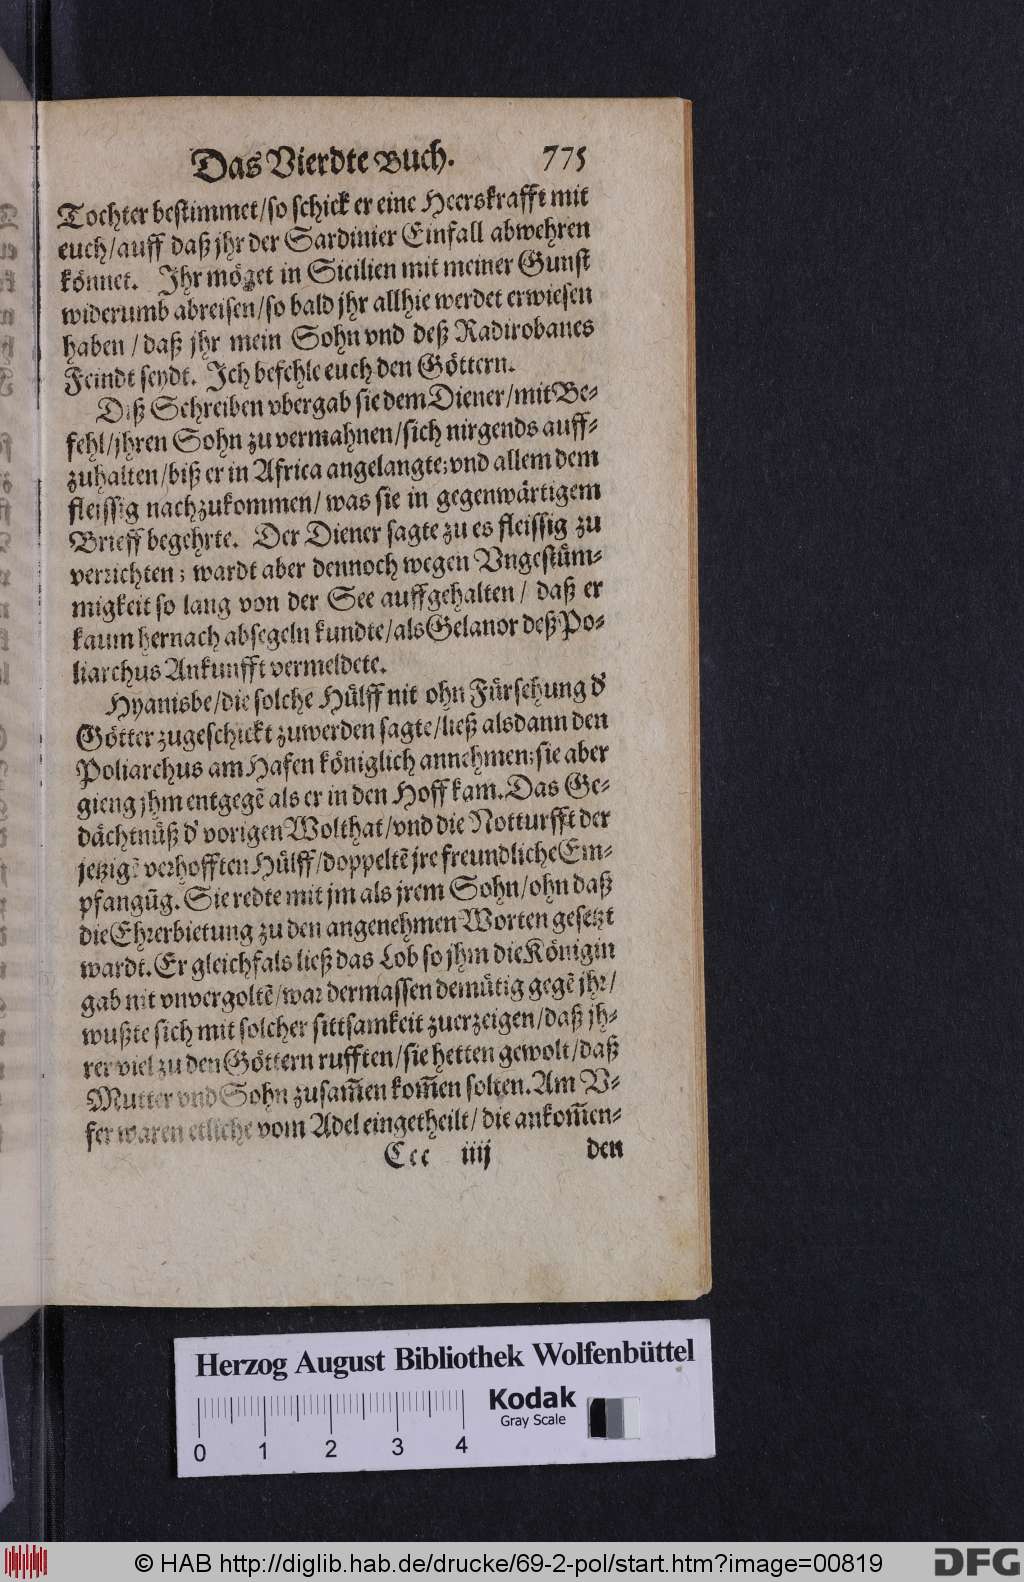 Das Vierdte Buch. 775
Tochter bestimmet/so schick er eine Heerskrafft mit
euch/auff daß jhr der Sardinier Einfall abwehren
könnet. Jhr möget in Sicilien mit meiner Gunst
widerumb abreisen/so bald jhr allhie werdet erwiesen
haben / daß jhr mein Sohn vnd deß Radirobanes
Feindt seydt. Jch befehle euch den Göttern.
Diß Schreiben vbergab sie dem Diener/mit Be-
fehl/jhren Sohn zu vermahnen/sich nirgends auff-
zuhalten/biß er in Africa angelangte; vnd allem dem
fleissig nachzukommen/ was sie in gegenwärtigem
Brieff begehrte. Der Diener sagte zu es fleissig zu
verrichten; wardt aber dennoch wegen Vngestüm-
migkeit so lang von der See auffgehalten / daß er
kaum hernach absegeln kundte/als Gelanor deß Po-
liarchus Ankunfft vermeldete.
Hyanisbe/die solche Hülff nit ohn Fürsehung d'
Götter zugeschickt zuwerden sagte/ließ alsdann den
Poliarchus am Hafen königlich annehmen; sie aber
gieng jhm entgegē als er in den Hoff kam. Das Ge-
dächtnüß d' vorigen Wolthat/vnd die Notturfft der
jetzigē verhofften Hülff/doppeltē jre freundliche Em-
pfangūg. Sie redte mit jm als jrem Sohn/ohn daß
die Ehrerbietung zu den angenehmen Worten gesetzt
wardt. Er gleichfals ließ das Lob so jhm die Königin
gab nit vnvergoltē/war dermassen demütig gegē jhr/
wußte sich mit solcher sittsamkeit zuerzeigen/daß jh-
rer viel zu den Göttern rufften/sie hetten gewolt/daß
Mutter vnd Sohn zusam̄en kom̄en solten. Am V-
fer waren etliche vom Adel eingetheilt/ die ankom̄en-
Ccc iiij den
Herzog August Bibliothek Wolfenbüttel
Kodak
Gray Scale
0 1 2 3 4
© HAB http://diglib.hab.de/drucke/69-2-pol/start.htm?image=00819
DFG